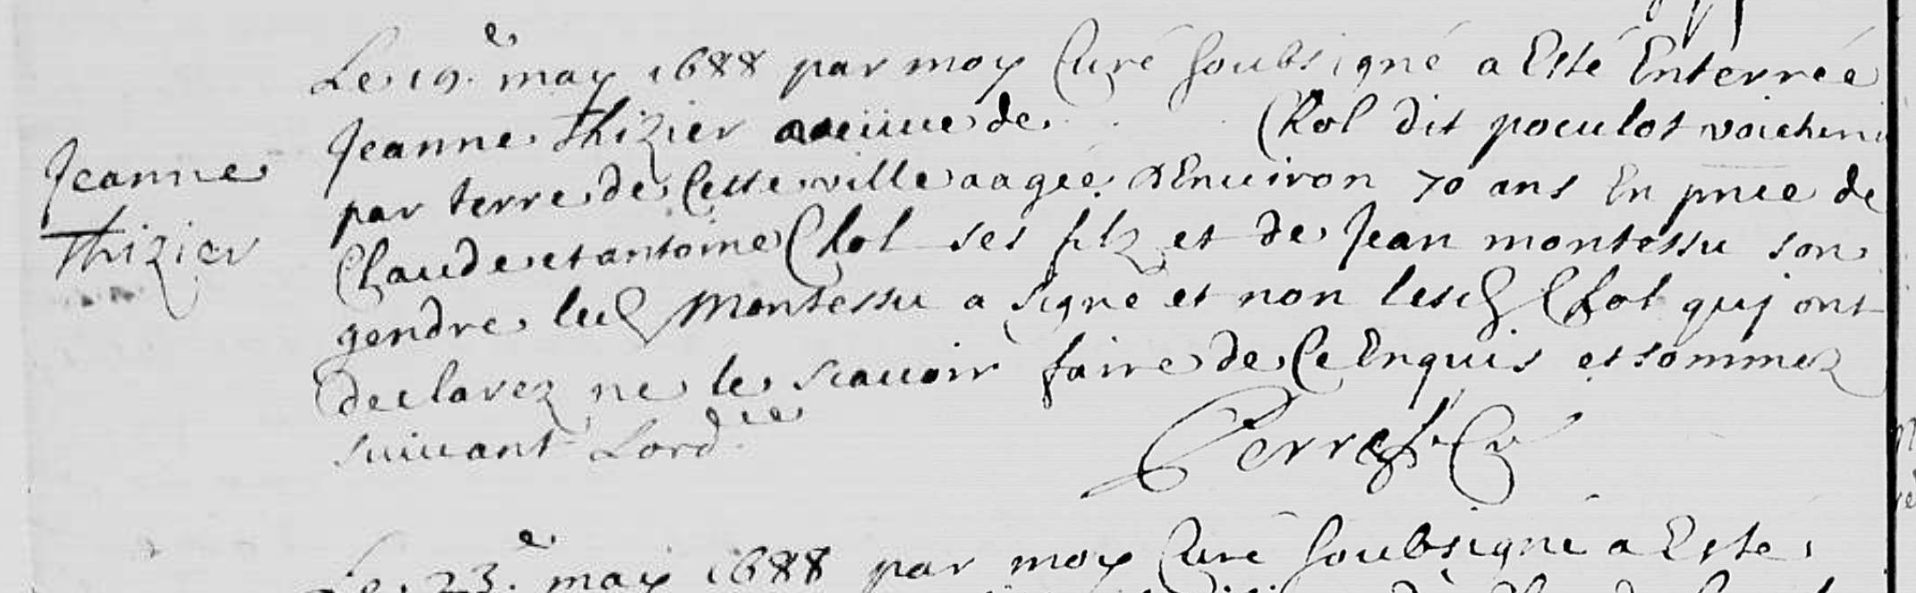 Le 19.e may 1688 par moy Curé soubsigné a Esté Enterrée
Jeanne Thizier veuue de Chol dit poculot voicturier
Jeanne
Thizier
par terre de Cette ville aagée d'Enuiron 70 ans En pnce de
Claude et antoine Chol ses filz et de Jean montessu son
gendre led Montessu a signé et non lesd Chol quj ont
declarez ne le scauoir faire de Ce Enquis et sommez
suiuant Lord.ce
Perret Cu
Le 23.e may 1688 par moy Curé soubsigné a Esté